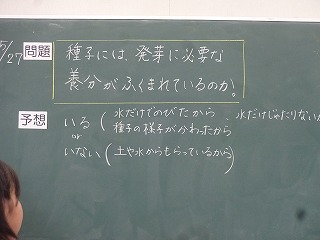 5/27 問題 種子には、発芽に必要な
養分がふくまれているのか。
予想 いる ( 水だけでのびたから 、水だけじゃたりない
種子の様子がかわったから
or
いない ( 土や水からもらっているから )